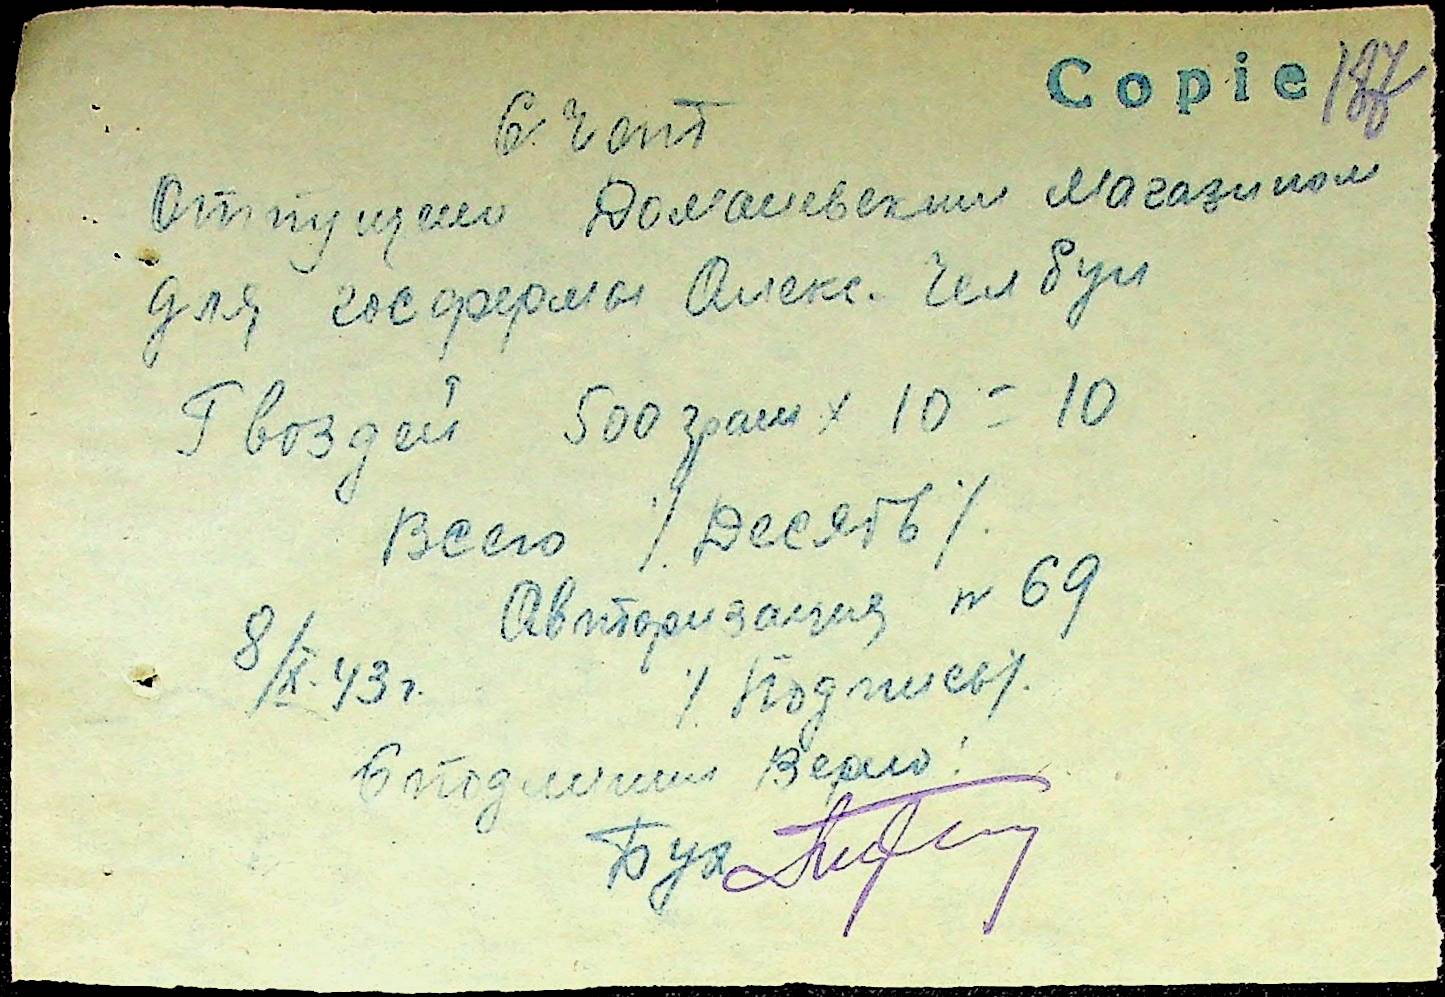 Copie 187
Счет
Отпущено Доманевским магазином
для госфермы Алекс. Челбун
Гвоздей 500 грам х 10 = 10
Всего /. Десять /.
Авторизация N 69
8/X-43 г. /. Подпись /.
С подлиным Верно:
Бух